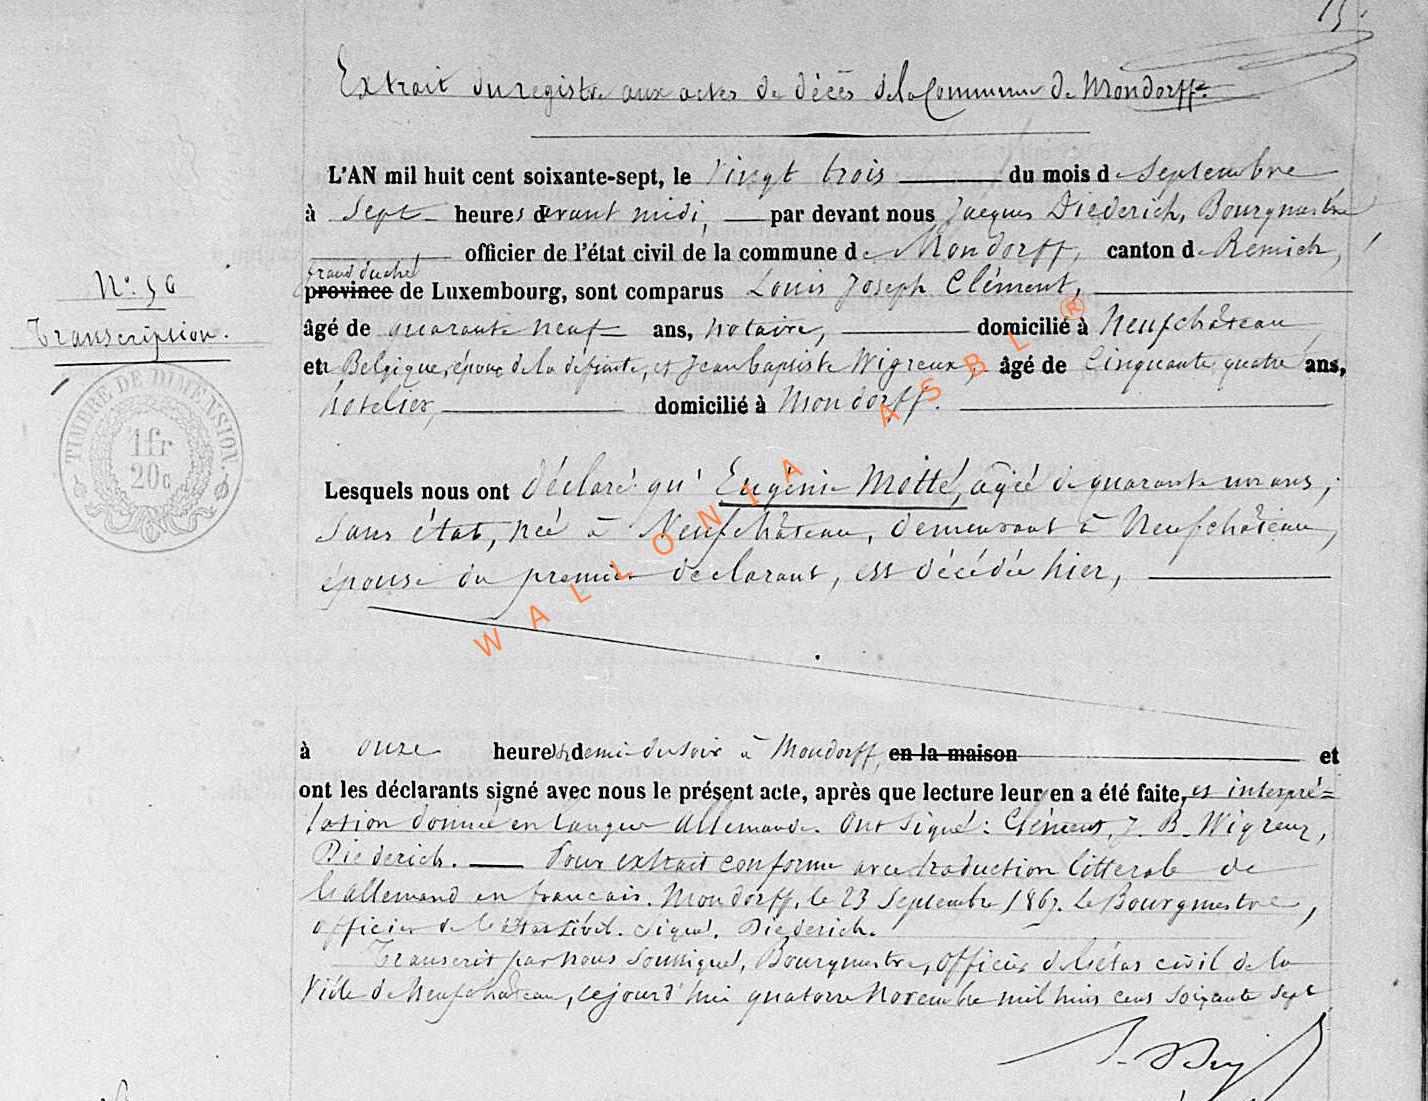 Extrait du registre aux actes de décès de la Commune de Mondorff.
L'AN mil huit cent soixante-sept, le vingt trois du mois de Septembre
à Sept heures devant midi, par devant nous Jacques Diederich, Bourgmestre
officier de l'état civil de la commune de Mondorff, canton de Remich,
grand duché
province de Luxembourg, sont comparus Louis Joseph Clément,
N° 50
âgé de quarante neuf ans, notaire, domicilié à Neufchâteau
Transcription.
en Belgique, époux de la défunte, et Jean baptiste Wigreux, âgé de Cinquante quatre ans,
hôtelier, domicilié à Mondorff.
TIMBRE DE DIMENSION.
1fr
20c
Lesquels nous ont déclaré qu'Eugénie Motté, agée de quarante un ans,
sans état, née à Neufchâteau, demeurant à Neufchâteau,
épouse du premier declarant, est décédée hier,
à onze heures & demie du soir à Mondorff, en la maison et
ont les déclarants signé avec nous le présent acte, après que lecture leur en a été faite, et interpré=
tation donnée en langue allemande. Ont signé: Clément, J. B. Wigreux,
Diederich. Pour extrait conforme avec traduction litterale de
l'allemand en francais. Mondorff, le 23 Septembre 1867. Le Bourgmestre,
officier de l'état civil. signé, Diederich.
Transcrit par nous soussigné, Bourgmestre, officier de l'état civil de la
Ville de Neufchâteau, cejourd'hui quatorze Novembre mil huit cent soixante sept
WALLONIA ASBL ®